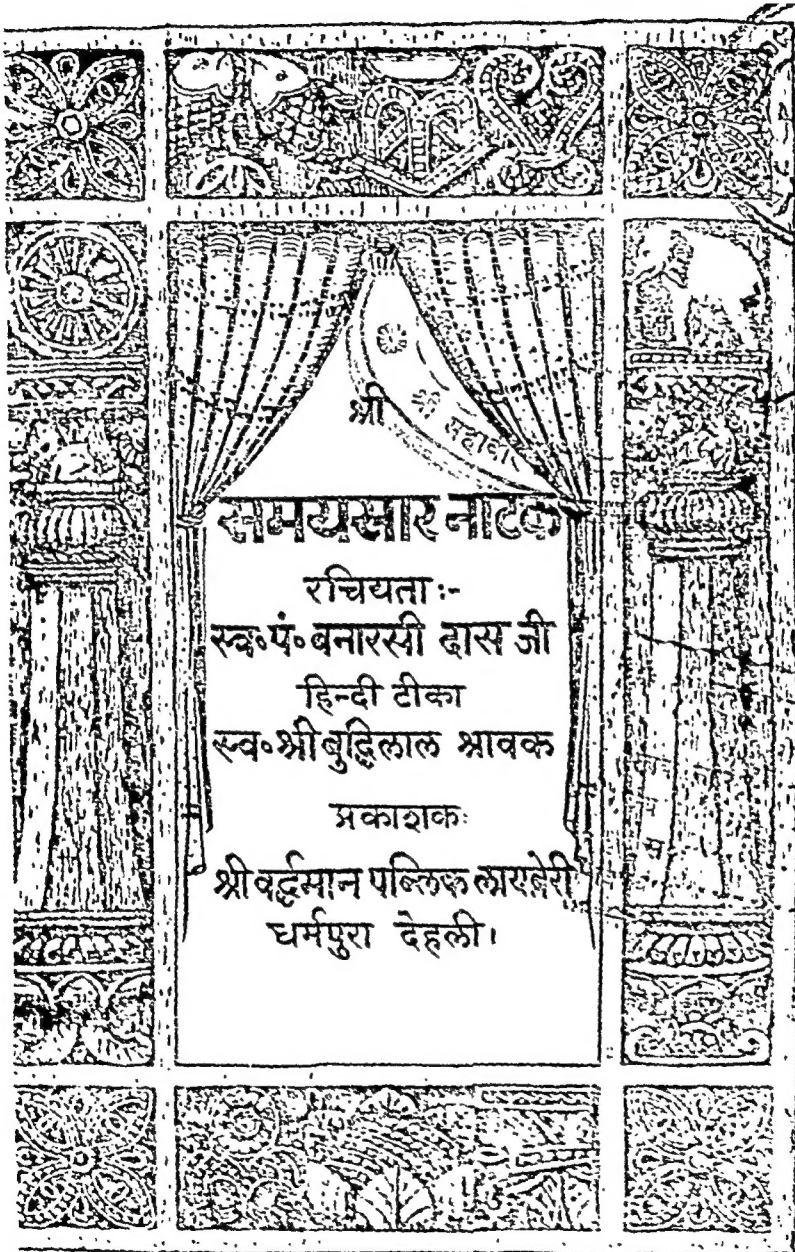 श्री
श्री महावीर
समयसार नाटक
रचियता:-
स्व॰पं॰बनारसी दास जी
हिन्दी टीका
स्व॰श्रीबुद्धिलाल श्रावक
प्रकाशक:
श्री वर्द्धमान पब्लिक लायब्रेरी
धर्मपुरा देहली।